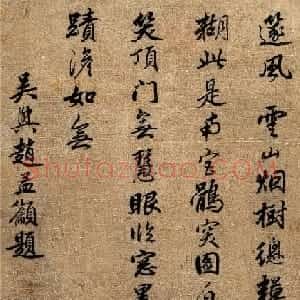 風雲山烟樹總糢
糊此是南宮鶻突圖自
笑頂门無慧眼臨窓墨
蹟澹如無
吳興趙孟頫題